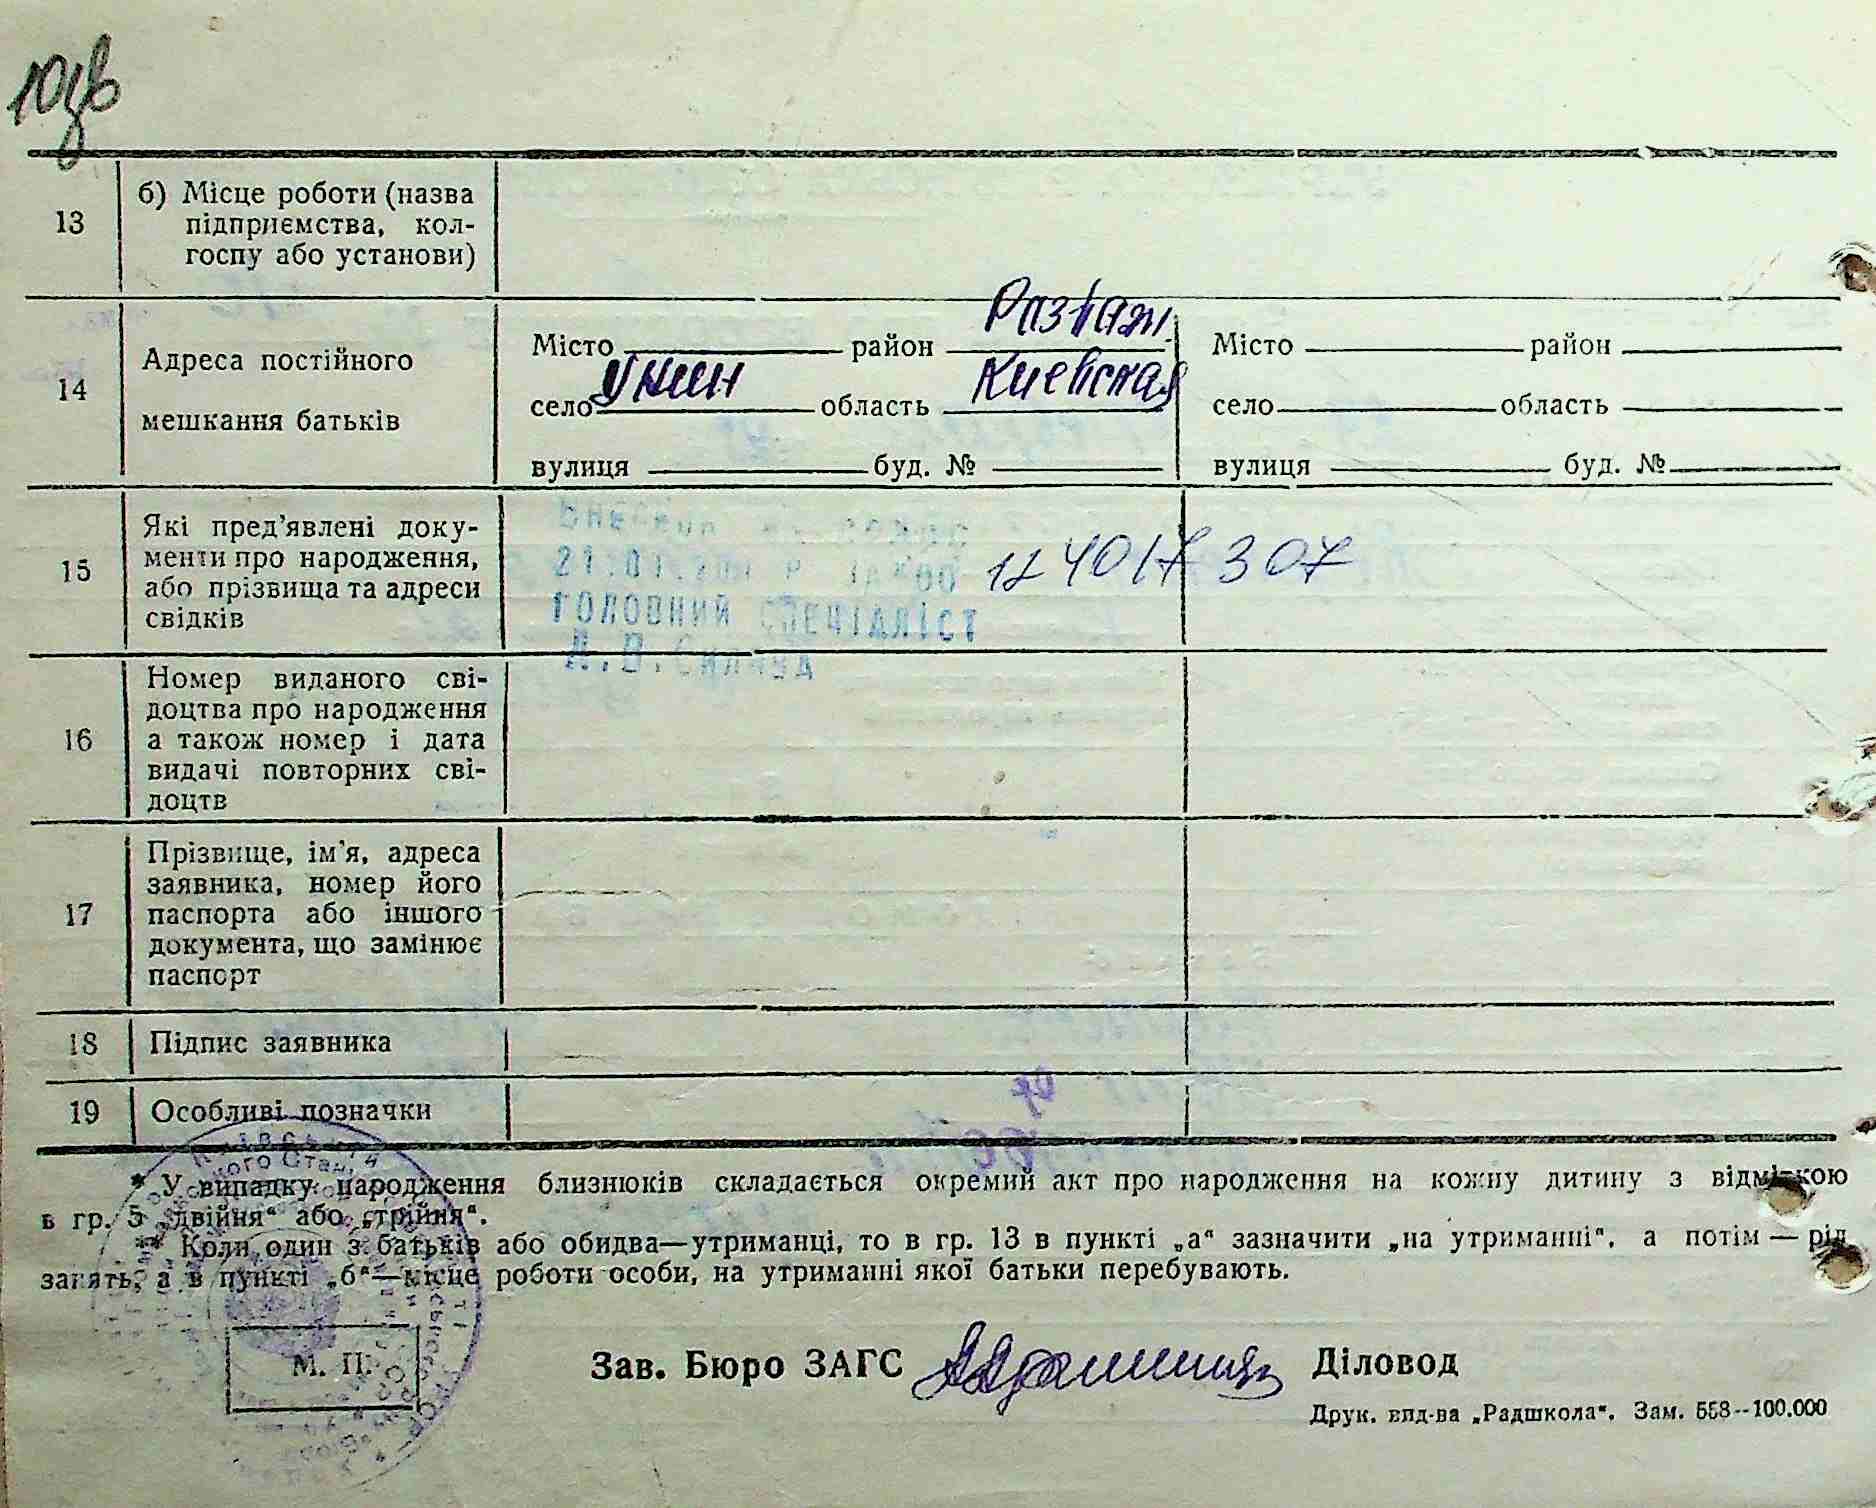 10зв
13
б) Місце роботи (назва
підприємства, кол-
госпу або установи)
14
Адреса постійного
мешкання батьків
Місто район Розваж.
село Унин область Киевская
вулиця буд. №
Місто район
село область
вулиця буд. №
15
Які пред'явлені доку-
менти про народження,
або прізвища та адреси
свідків
21.01.
ГОЛОВНИЙ СПЕЦІАЛІСТ
12401 307
16
Номер виданого сві-
доцтва про народження
а також номер і дата
видачі повторних сві-
доцтв
17
Прізвище, ім'я, адреса
заявника, номер його
паспорта або іншого
документа, що замінює
паспорт
18
Підпис заявника
19
Особливі позначки
* У випадку народження близнюків складається окремий акт про народження на кожну дитину з відміткою
в гр. 5 „двійня“ або „трійня“.
* Коли один з батьків або обидва—утриманці, то в гр. 13 в пункті „а“ зазначити „на утриманні“, а потім — рід
занять, а в пункті „б“—місце роботи особи, на утриманні якої батьки перебувають.
М. П.
Зав. Бюро ЗАГС
Діловод
Друк. вид-ва „Радшкола“. Зам. 558--100.000